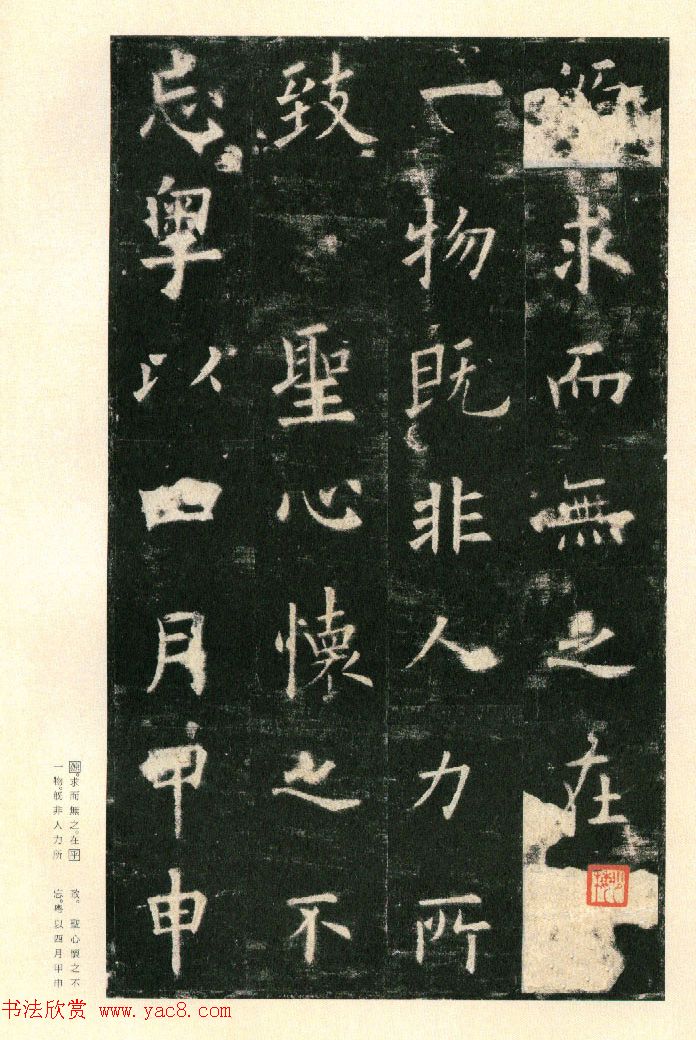 求而無之在
一物既非人力所
致 聖心懷之不
忘粵以四月甲申
源。求而無之。在乎
一物。既非人力所
致。 聖心懷之不
忘。粵以四月甲申
书法欣赏 www.yac8.com